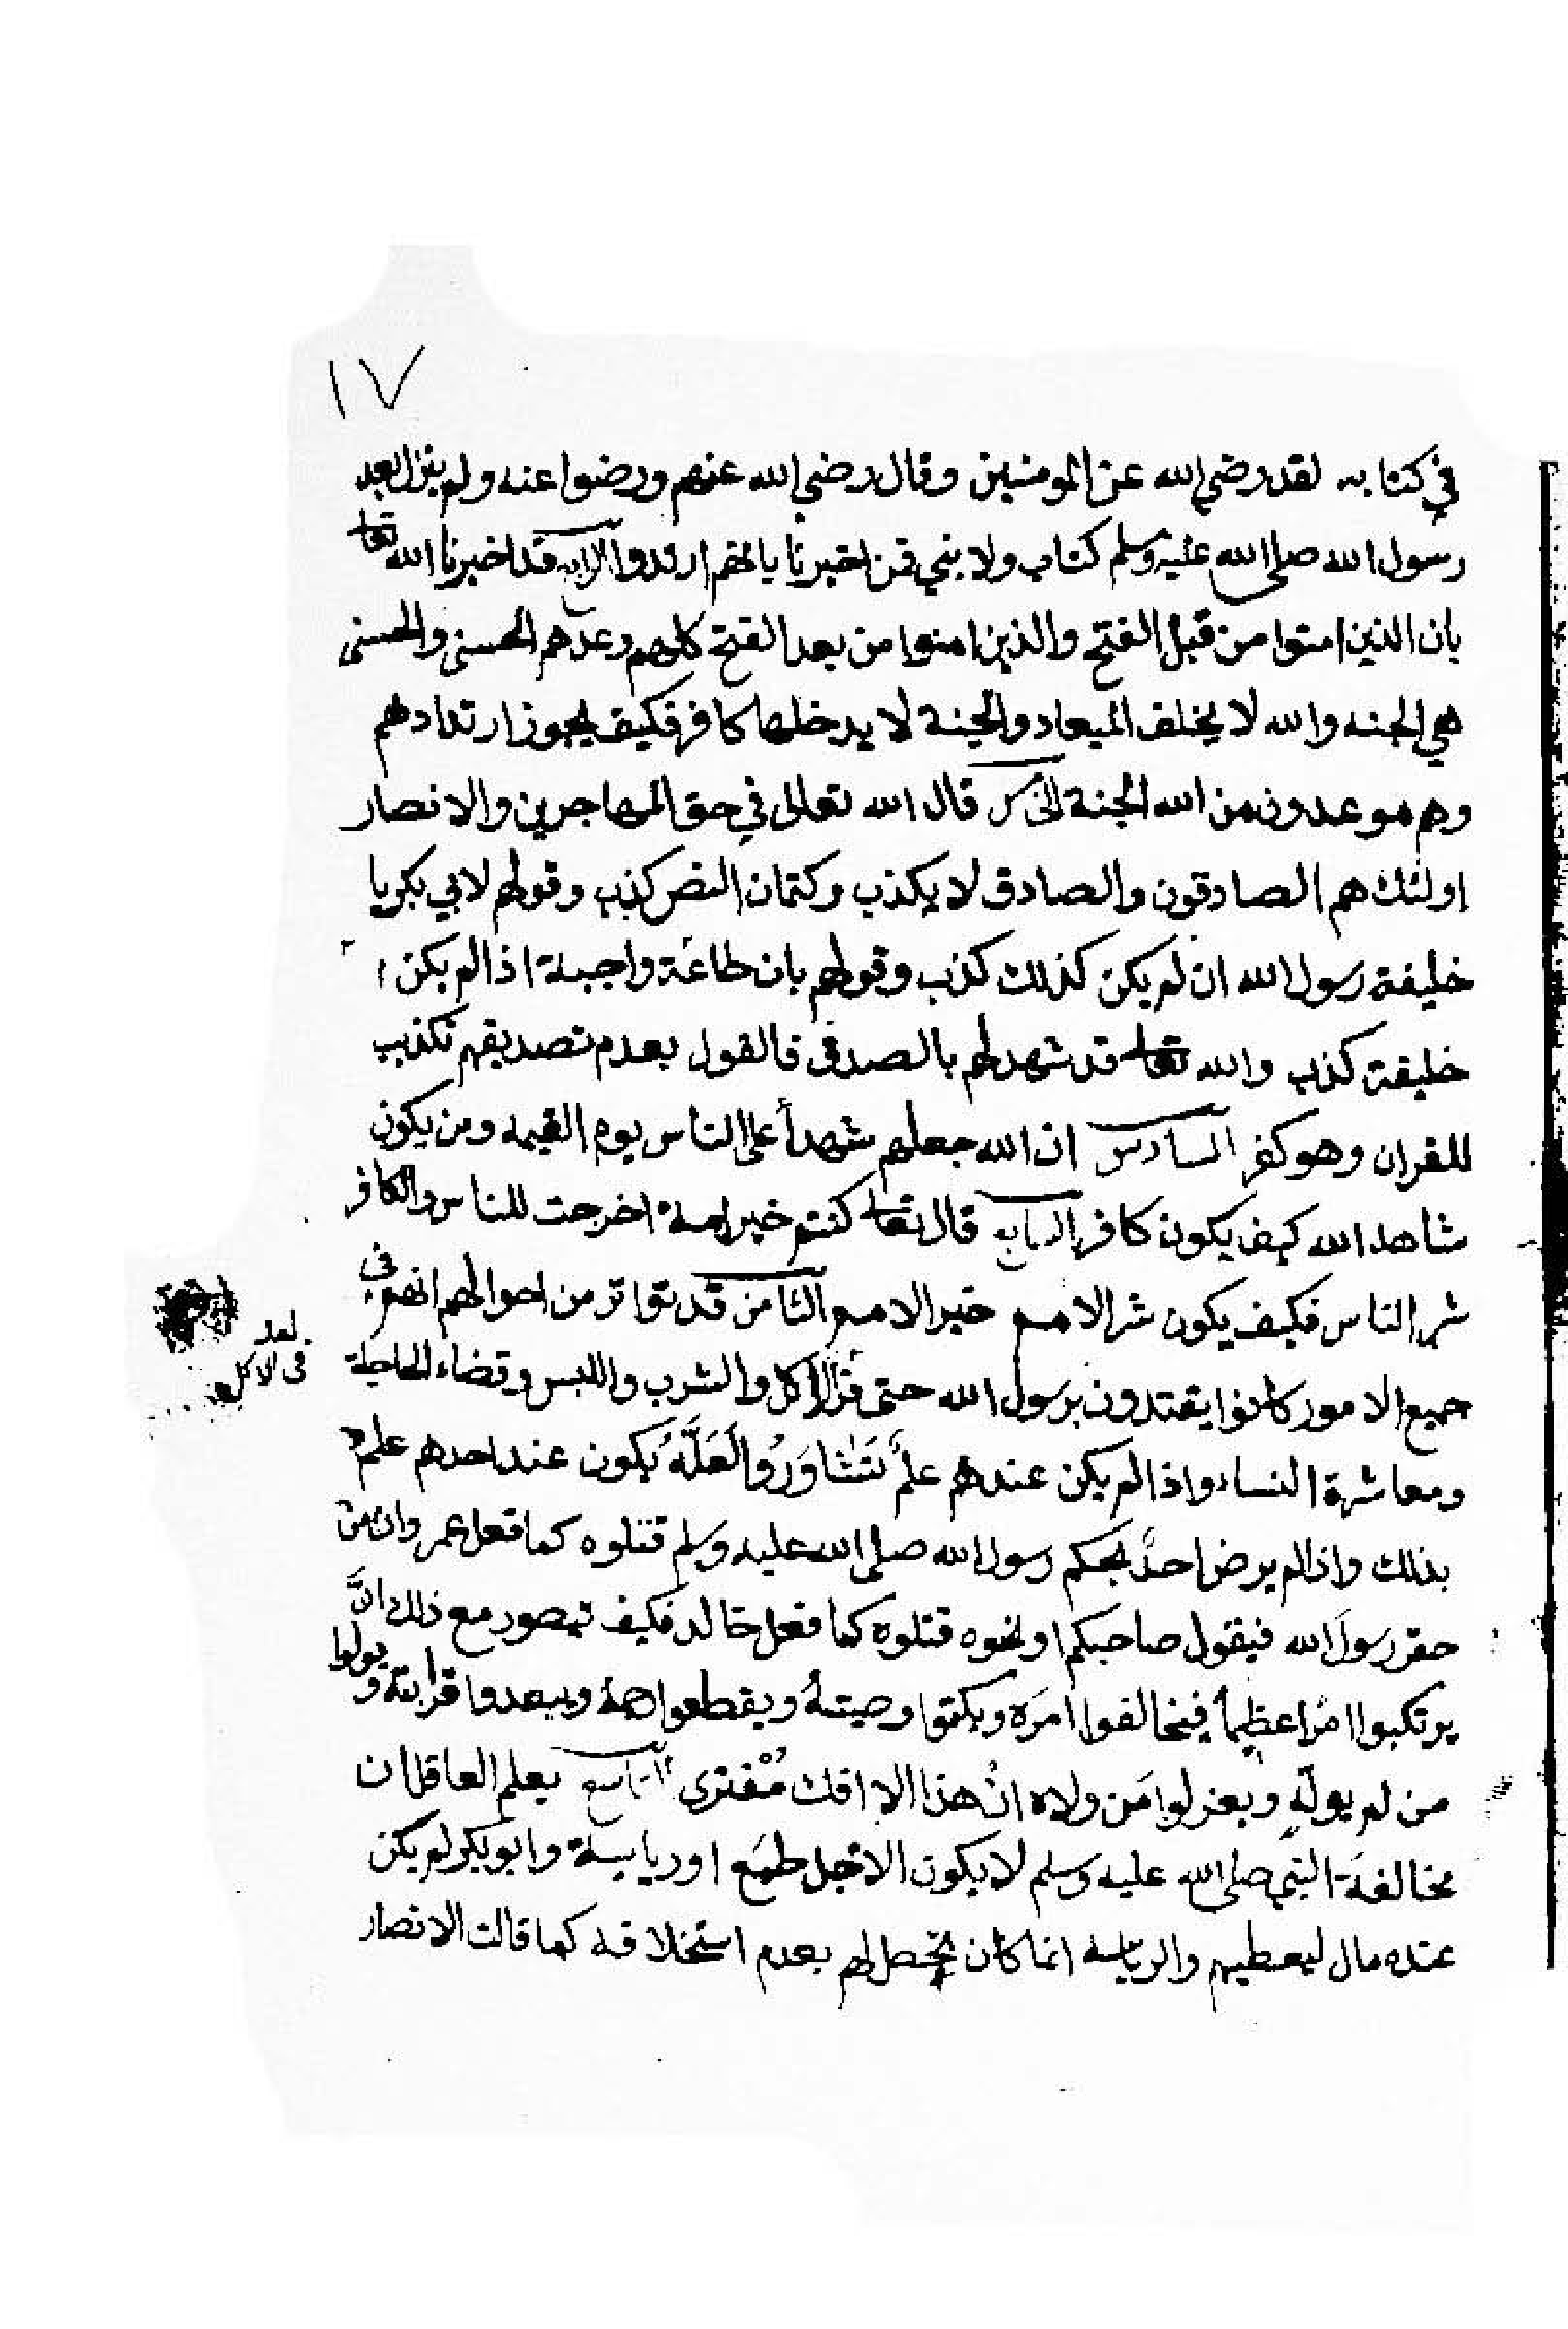 ١٧
في كتابه لقد رضي الله عن المومنين وقال رضي الله عنهم ورضوا عنه ولم ينزل بعد
رسول الله صلى الله عليه وسلم كتاب ولا بني فمن اخبرنا بانهم ارتدوا الرابع قد اخبرنا الله تعالى
بان الذين امنوا من قبل الفتح والذين امنوا من بعد الفتح كلهم وعدهم الحسنى والحسنى
هي الجنه والله لا يخلف الميعاد والجنة لا يدخلها كافر فكيف يجوز ارتدادهم
وهم موعدون من الله الجنة الخامس قال الله تعالى في حق المهاجرين والانصار
اولئك هم الصادقون والصادق لا يكذب وكتمان النص كذب وقولهم لابي بكر يا
خليفة رسول الله ان لم يكن كذلك كذب وقولهم بان طاعة واجبة اذا لم يكن
خليفة كذب والله تعالى قد شهد لهم بالصدق فالقول بعدم تصديقهم تكذيب
للقران وهو كفر السادس ان الله جعلهم شهدأ على الناس يوم القيمه ومن يكون
شاهد الله كيف يكون كافر السابع قال تعالى كنتم خير امة اخرجت للناس والكافر
شر الناس فكيف يكون شر الامم خير الامم الثامن قد تواتر من احوالهم انهم في
جميع الامور كانوا يقتدون برسول الله حتى في الاكل والشرب واللبس وقضاء الحاجة
في الاكل
ومعاشرة النساء واذا لم يكن عندهم علم تشاوروا لعله يكون عند احدهم علم
بذلك واذا لم يرض احد بحكم رسول الله صلى الله عليه وسلم قتلوه كما فعل عمر وان من
حقر رسول الله فيقول صاحبكم او نحوه قتلوه كما فعل خالد فكيف يتصور مع ذلك ان
يرتكبوا امرا عظيما فيخالفوا امره ويكتموا وصيته ويقطعوا ويبعدوا قرابته ويولوا
من لم يوله ويعزلوا من ولاه ان هذا الا افك مفترى التاسع يعلم العاقل ان
مخالفة النبي صلى الله عليه وسلم لا يكون الا لاجل طمع او رياسة وابو بكر لم يكن
عنده مال ليعطيهم والرياسه انما كان تحصل لهم بعدم استخلافه كما قالت الانصار